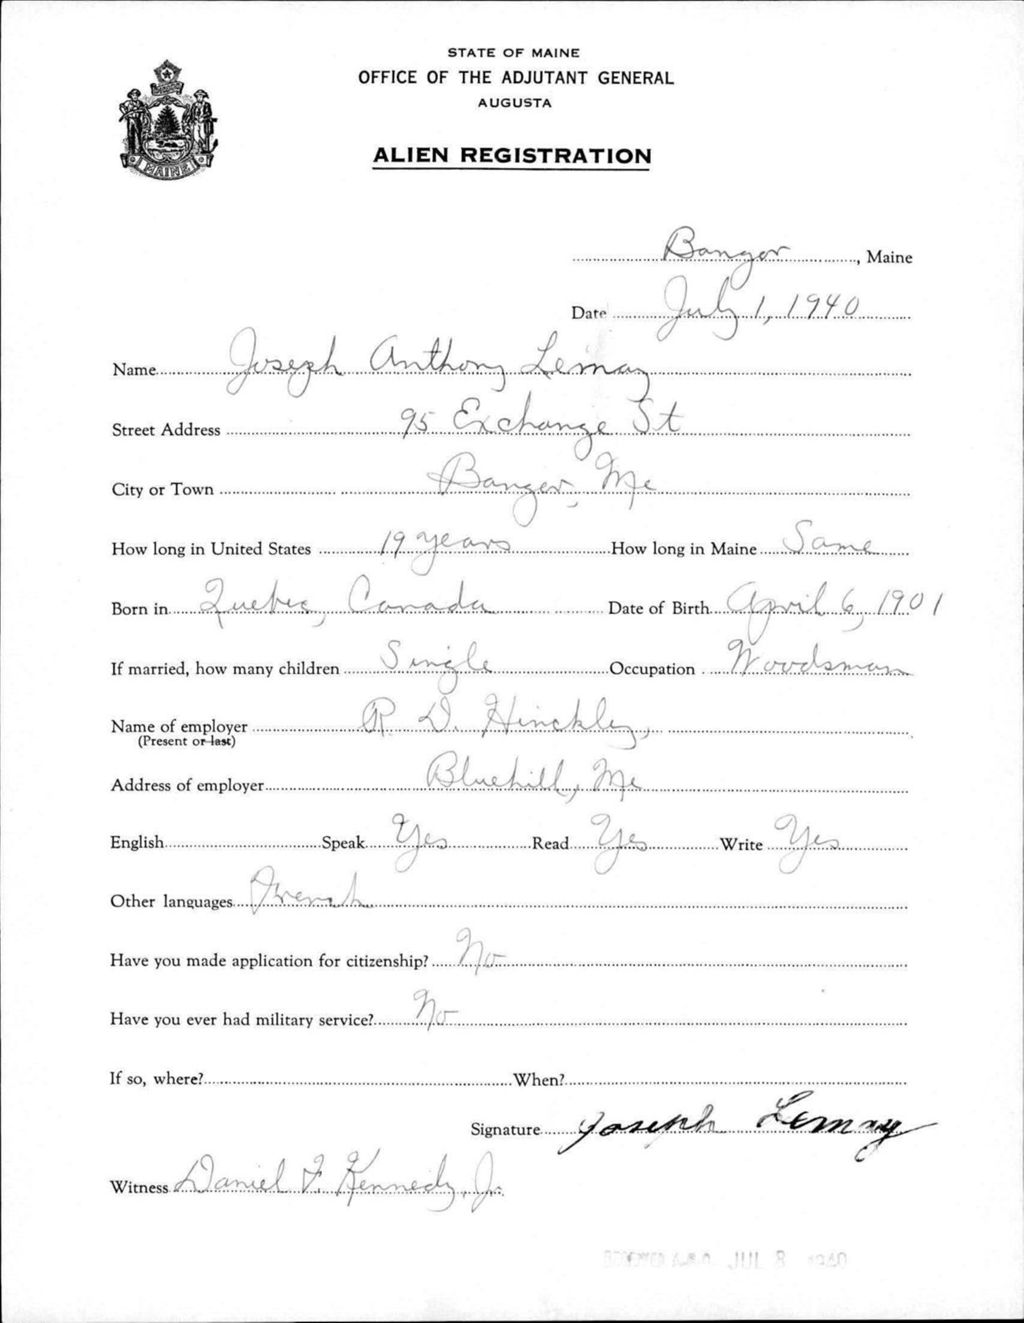 STATE OF MAINE
OFFICE OF THE ADJUTANT GENERAL
AUGUSTA
ALIEN REGISTRATION
MAINE
Bangor, Maine
Date July 1, 1940
Name Joseph Anthony Lemay
Street Address 95 Exchange St
City or Town Bangor, Me
How long in United States 19 years How long in Maine Same
Born in Quebec, Canada Date of Birth April 6, 1901
If married, how many children Single Occupation Woodsman
Name of employer R. D. Hinckley,
(Present or last)
Address of employer Bluehill, Me
English Speak Yes Read Yes Write Yes
Other languages French
Have you made application for citizenship? No
Have you ever had military service? No
If so, where? When?
Signature Joseph Lemay
Witness Daniel F. Kennedy, Jr.
A.G.O. JUL 8 1940